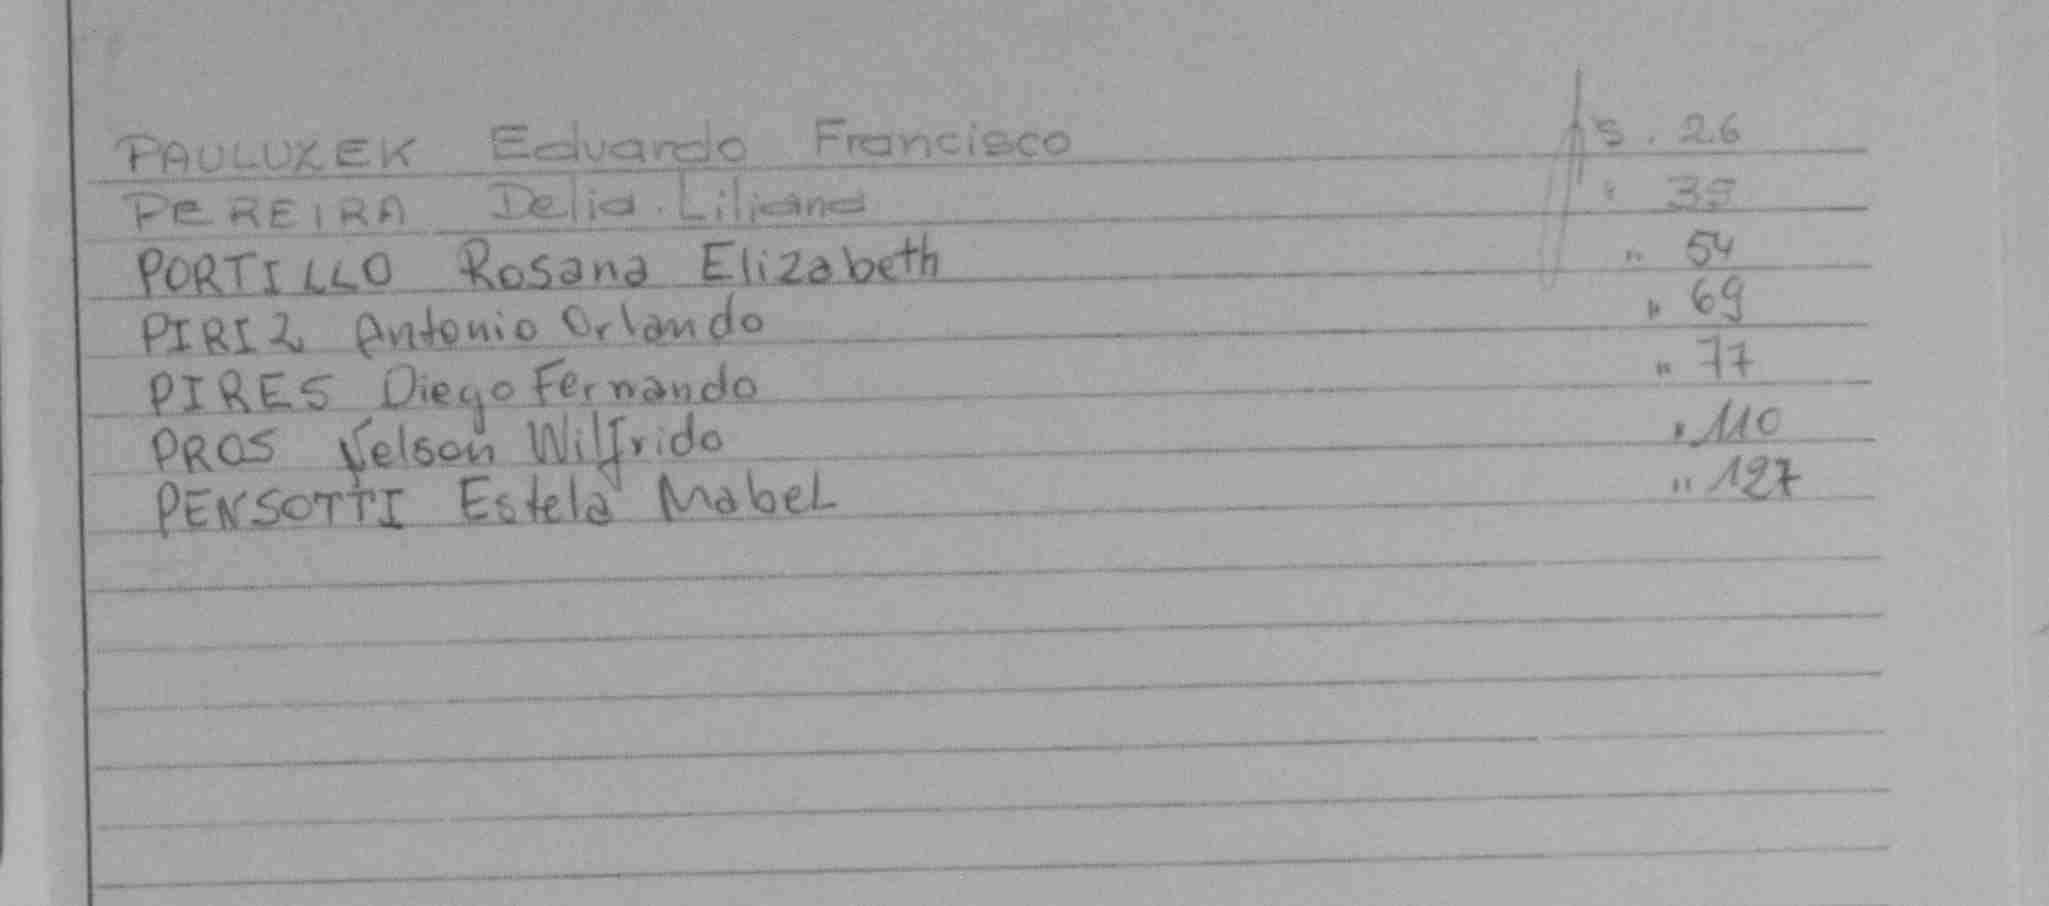 PAULUXEK Eduardo Francisco fs. 26
PEREIRA Delia. Liliana " 39
PORTILLO Rosana Elizabeth " 54
PIRIZ Antonio Orlando " 69
PIRES Diego Fernando " 77
PROS Nelson Wilfrido " 110
PENSOTTI Estela Mabel " 127